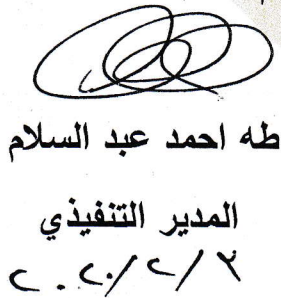 طه احمد عبد السلام
المدير التنفيذي
٣/٢/٢٠٢٠